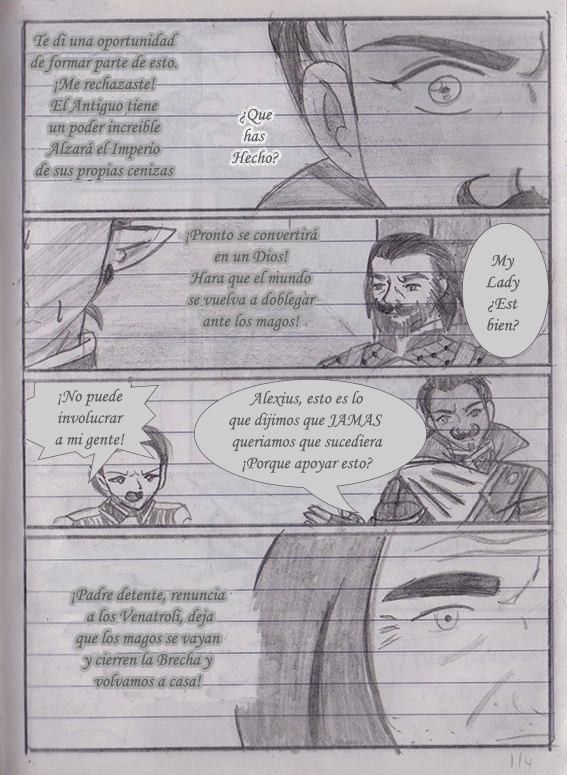 Te di una oportunidad
de formar parte de esto.
¡Me rechazaste!
El Antiguo tiene
un poder increible
Alzará el Imperio
de sus propias cenizas
¿Que
has
Hecho?
¡Pronto se convertirá
en un Dios!
Hara que el mundo
se vuelva a doblegar
ante los magos!
My
Lady
¿Est
bien?
¡No puede
involucrar
a mi gente!
Alexius, esto es lo
que dijimos que JAMAS
queriamos que sucediera
¡Porque apoyar esto?
¡Padre detente, renuncia
a los Venatroli, deja
que los magos se vayan
y cierren la Brecha y
volvamos a casa!
114